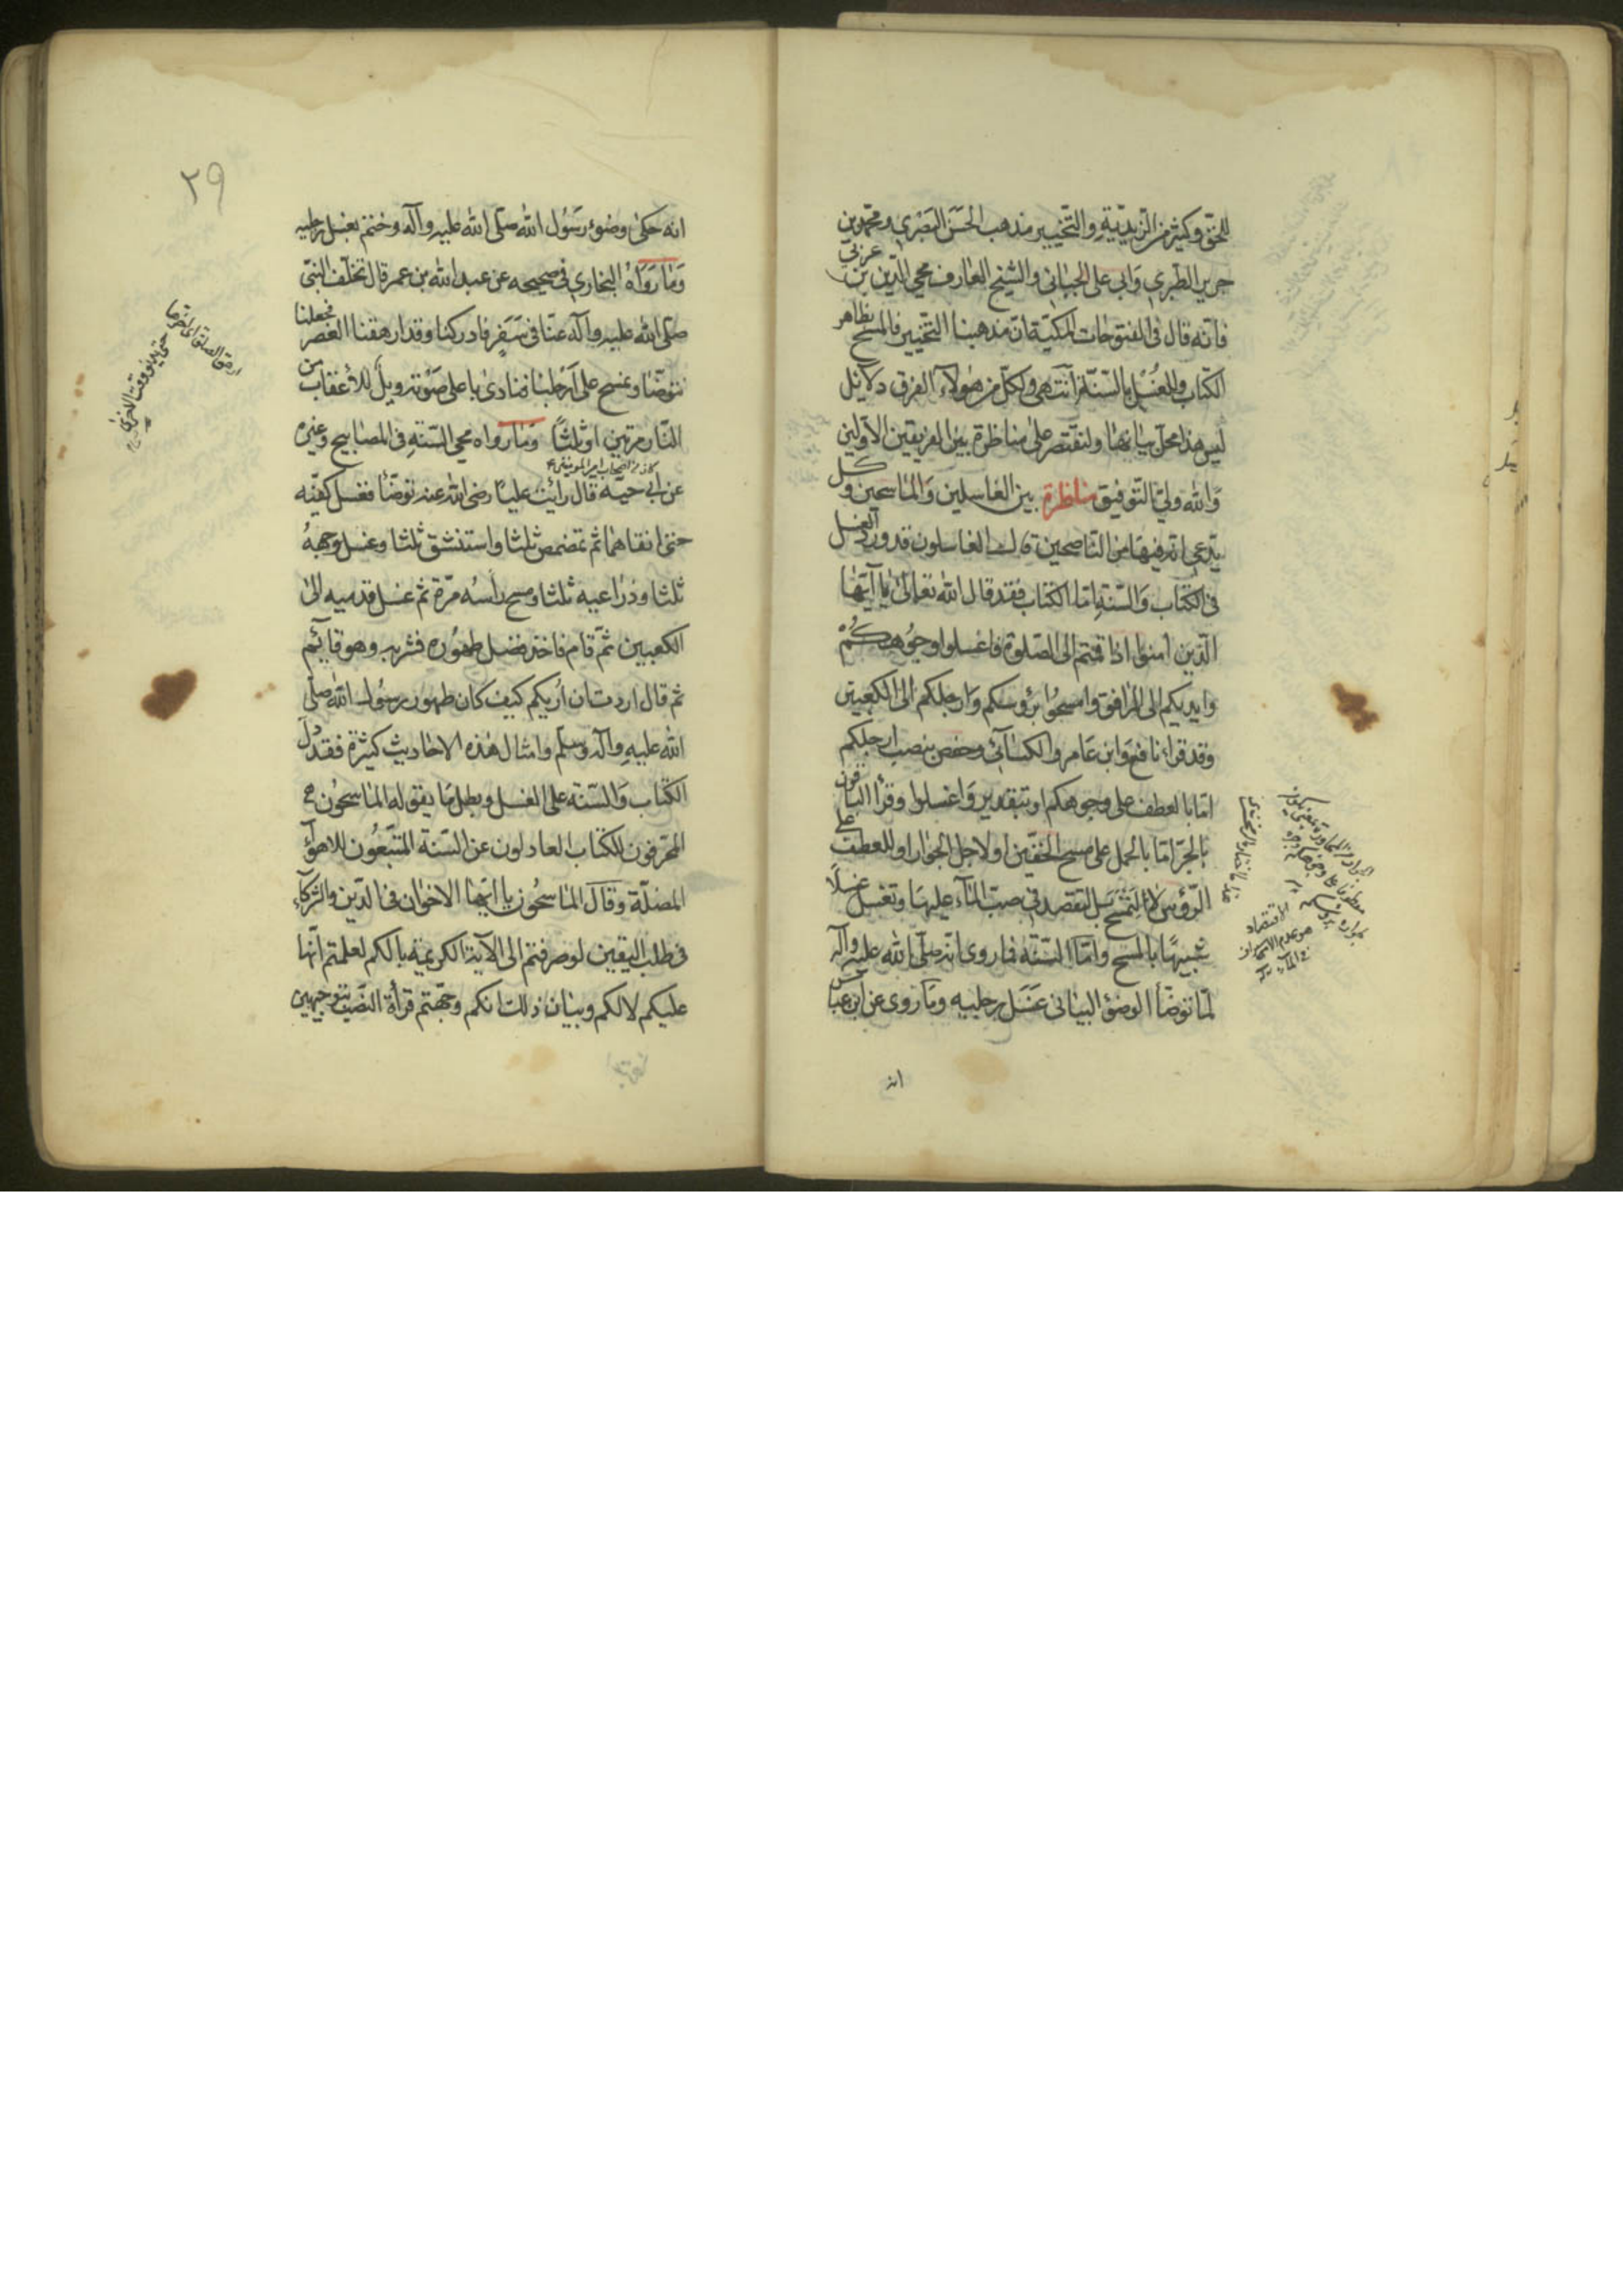 للحق وكثير من الزيدية والتخيير مذهب الحسن البصري ومحمد بن
جرير الطبري وابي علي الجبائي والشيخ العارف محيي الدين بن عربي
فانه قال في الفتوحات المكية ان مذهبنا التخيير فالمسح بظاهر
الكتاب والغسل بالسنة انتهى ولكل من هؤلاء الفرق دلائل
ليس هذا محل بيانها ولنقتصر على مناظرة بين الفريقين الاولين
والله ولي التوفيق مناظرة بين الغاسلين والماسحين وكل
يدعي انه فيها من الناصحين قالت الغاسلون قد ورد الغسل
في الكتاب والسنة اما الكتاب فقد قال الله تعالى يا آيها
الذين امنوا اذا قمتم الى الصلوة فاغسلوا وجوهكم
وايديكم الى المرافق وامسحوا برؤسكم وارجلكم الى الكعبين
وقد قراء نافع وابن عامر والكسائي وحفص بنصب ارجلكم
اما بالعطف على وجوهكم او بتقدير واغسلوا وقرأ الباقون
بالجر اما بالحمل على مسح الخفين او لاجل الجوار او للعطف على
الرؤس لا لتمسح بل لتقصد في صب الماء عليها وتغسل غسلا
شبيها بالمسح واما السنة فما روى انه صلى الله عليه وآله
لما توضأ الوضؤ البياني غسل رجليه وما روى عن ابن عباس
انه
٢٩
انه حكى وضوء رسول الله صلى الله عليه وآله وختم بغسل رجليه
وما رواه البخاري في صحيحه عن عبد الله بن عمر قال تخلف النبي
صلى الله عليه وآله عنا في سفر فادركنا وقد ارهقنا العصر فجعلنا
نتوضأ ونمسح على ارجلنا فنادى باعلى صوته ويل للأعقاب من
النار مرتين او ثلثا وما رواه محي السنة في المصابيح وغيره
كان من اصحاب امير المومنين ع
عن ابي حيه قال رأيت عليا رضى الله عنه توضأ فغسل كفيه
حتى انقاهما ثم تمضمض ثلثا واستنشق ثلثا وغسل وجهه
ثلثا وذراعيه ثلثا ومسح رأسه مرة ثم غسل قدميه الى
الكعبين ثم قام فاخذ فضل طهوره فشربه وهو قايم
ثم قال اردت ان اريكم كيف كان طهور رسول الله صلى
الله عليه وآله وسلم وامثال هذه الاحاديث كثيرة فقد دل
الكتاب والسنة على الغسل وبطل ما يقوله الماسحون
المحرفون للكتاب العادلون عن السنة المتبعون للاهواء
المضلة وقال الماسحون يا ايها الاخوان في الدين والشركاء
في طلب اليقين لو صرفتم الى الآية الكريمة بالكم لعلمتم انها
عليكم لا لكم وبيان ذلك انكم وجهتم قرأة النصب بتوجيهين
ارهق الصلوة اي اخرها
حتى يدنو وقت الاخرى